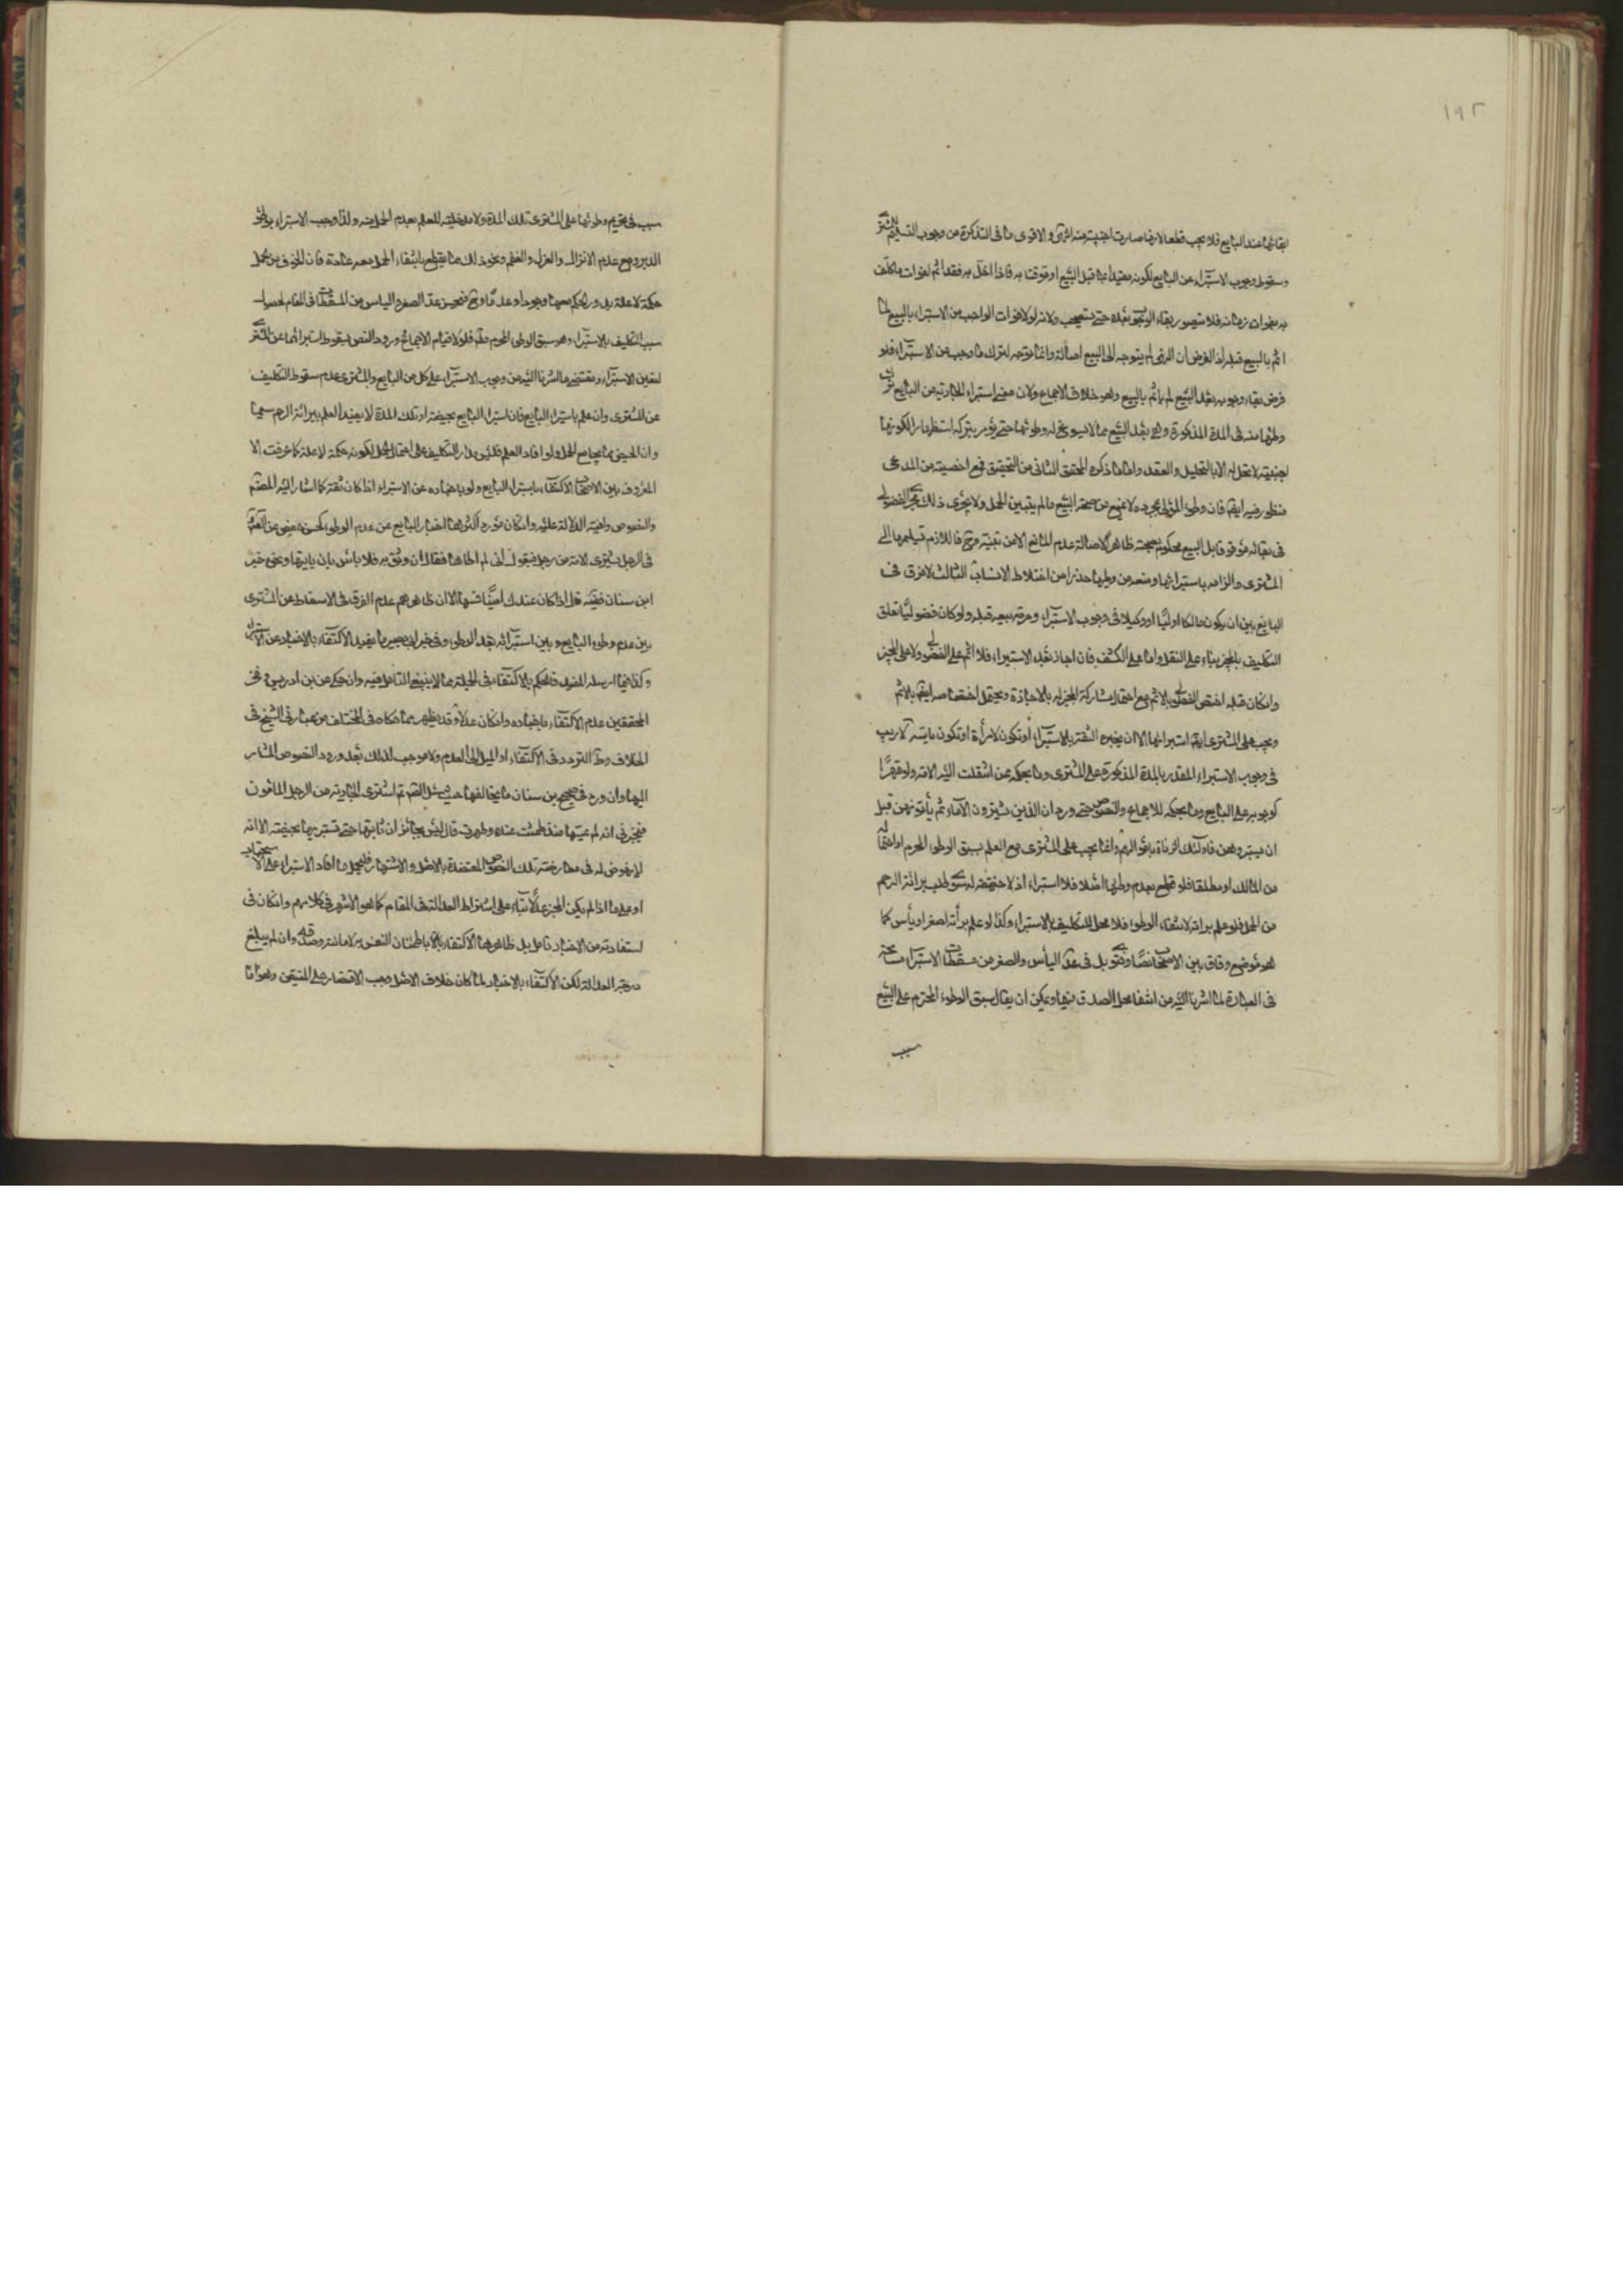 ١٩٢
ابقائها عند البايع فلا يجب قطعا لانها صارت اجنبية منه انتهى والاقوى ما فى التذكرة من وجوب التسليم للمشترى
وسقوط وجوب الاستبراء عن البايع لكونه مقيدا بما قبل البيع او موقتا به فاذا اخل به فقد اثم لفوات ما كلف
به بفوات زمانه فلا يتصور بقاء الوجوب بعده حتى يستصحب ولانه لولا فوات الواجب من الاستبراء بالبيع لما
اثم بالبيع قبله اذ الفرض ان النهى لم يتوجه الى البيع اصالة وانما توجه لترك ما وجب من الاستبراء فلو
فرض بقاء وجوبه بعد البيع لم ياثم بالبيع وهو خلاف الاجماع ولان معنى استبراء الجارية من البايع ترك
وطئها منه فى المدة المذكورة وهى بعد البيع مما لا يسوغ له وطوئها حتى يؤمر بتركه استظهارا لكونها
اجنبية لا تحل له الا بالتحليل والعقد واما ما ذكره المحقق الثانى من التحقيق فمع اخصيته من المدعى
منظور فيه ايضا فان وطئ المولى بمجرده لا يمنع من صحة البيع ما لم يتبين الحمل ولا يجرى ذلك مجرى الفضولى
فى بقائه موقوفا بل البيع محكوم بصحته ظاهرا لاصالة عدم المانع الا من تبينه وح فاللازم تسليمها الى
المشترى والزامه باستبرائها ومنعه من وطيها حذرا من اختلاط الانساب الثالث لا فرق فى
البايع بين ان يكون مالكا او وليا او وكيلا فى وجوب الاستبراء وحرمة بيعه قبله ولو كان فضوليا تعلق
التكليف بالمجيز بناء على النقل واما على الكشف فان اجاز بعد الاستبراء فلا اثم على الفضولى ولا على المجيز
وان كان قبله اختص الفضولى بالاثم مع احتمال مشاركة المجيز له بالاجازة ويحتمل اختصاصه ايضا بالاثم
ويجب على المشترى ايضا استبرائها الا ان يخبره الثقة بالاستبراء او تكون لامرأة او تكون يايسة لا ريب
فى وجوب الاستبراء المقدر بالمدة المذكورة على المشترى وما بحكمه ممن انتقلت اليه الامة ولو قهرا
كوجوبه على البايع وما بحكمه للاجماع والنصوص حتى ورد ان الذين يشترون الاماء ثم يأتونهن قبل
ان يستبروهن فاولئك الزناة باموالهم وانما يجب على المشترى مع العلم بسبق الوطى المحرم او احتماله
من المالك او مطلقا فلو قطع بعدم وطيها اصلا فلا استبراء اذ لا مقتضى له سوى طلب برائة الرحم
من الحمل فلو علم برائته لانتفاء الوطوء فلا محل للتكليف بالاستبراء وكذا لو علم برأته لصغر او يأس كما
هو موضع وفاق بين الاصحاب نصا وفتوى بل فى عد اليأس والصغر من مسقطات الاستبراء مسامحة
فى العبارة لما اشرنا اليه من انتفاء محل الصدق فيها ويمكن ان يقال سبق الوطوء المحترم على البيع
سبب
سبب فى تحريم وطوئها على المشترى تلك المدة ولا مدخلية للعلم بعدم الحمل منه ولذا وجب الاستبراء بوطؤ
الدبر ومع عدم الانزال والعزل والعقم ونحو ذلك مما يقطع بانتفاء الحمل معه عادة فان الخوف من الحمل
حكمة لا علة يدور الحكم معها وجودا وعدما وح فيحسن عد الصغر والياس من المسقطات فى المقام لحصول
سبب التكليف بالاستبراء وهو سبق الوطى المحترم منه فلولا قيام الاجماع وورود النص بسقوط استبرائها عن المشترى
لتعين الاستبراء ومقتضى ما اشرنا اليه من وجوب الاستبراء على كل من البايع والمشترى عدم سقوط التكليف
عن المشترى وان علم باستبراء البايع فان استبراء البايع بحيضة او تلك المدة لا يفيد العلم ببرائة الرحم سيما
وان الحيض مما يجامع الحمل ولو افاد العلم فليس مدار التكليف على احتمال الحمل لكونه حكمة لا علة كما عرفت الا
المعروف بين الاصحاب الاكتفاء باستبراء البايع ولو باخباره عن الاستبراء اذا كان ثقة كما اشار اليه المصنف
والنصوص وافية الدلالة عليه وان كان مورد اكثرها اخبار البايع عن عدم الوطى كحسنة حفص عن الصادق
فى الرجل يشترى الامة من رجل فيقول انى لم اطاها فقال ان وثق به فلا بأس بان ياتيها ونحوه خبر
ابن سنان ففيه قال اذا كان عندك امينا فمسها الا ان ظاهرهم عدم الفرق فى الاسقاط عن المشترى
بين عدم وطوء البايع وبين استبرائه بعد الوطى وفى خبر ابى بصير ما يفيد الاكتفاء بالاخبار عن الاستبراء
وكذا فيما ارسله المفيد فالحكم بالاكتفاء فى الجملة مما لا ينبغى التامل فيه وان حكى عن ابن ادريس وفخر
المحققين عدم الاكتفاء باخباره وان كان عدلا وقد يظهر مما حكاه فى المختلف من عبارتى الشيخ فى
الخلاف وط التردد فى الاكتفاء او الميل الى العدم ولا موجب لذلك بعد ورود النصوص المشار
اليها وان ورد فى صحيح بن سنان ما يخالفها حيث سئل الصم عمن اشترى الجارية من الرجل المامون
فيخبرنى انه لم يمسها منذ طمثت عنده وطهرت قال ليس بجائز ان تاتيها حتى تستبريها بحيضة الا انه
لا ينهض له فى معارضة تلك النصوص المعتضدة بالاصل والاشتهار فليحمل ما افاد الاستبراء على الاستحباب
او على ما اذا لم يكن المخبر عدلا بناء على اشتراط العدالة فى المقام كما هو الاشهر فى كلامهم وان كان فى
استفادته من الاخبار تامل بل ظاهرها الاكتفاء باطمئنان النفس به لامانته وصدقه وان لم يبلغ
درجة العدالة لكن الاكتفاء بالاخبار لما كان خلاف الاصل وجب الاقتصار على المتيقن وهو اما